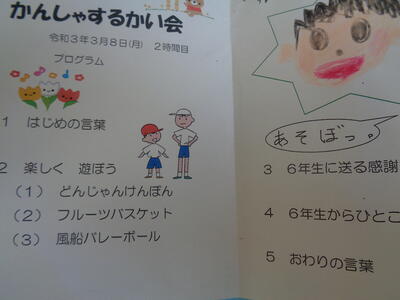 かんしゃするかい会
令和3年3月8日(月) 2時間目
プログラム
1 はじめの言葉
2 楽しく 遊ぼう
(1) どんじゃんけんぽん
(2) フルーツバスケット
(3) 風船バレーボール
あそぼっ。
3 6年生に送る感謝
4 6年生からひとこ
5 おわりの言葉